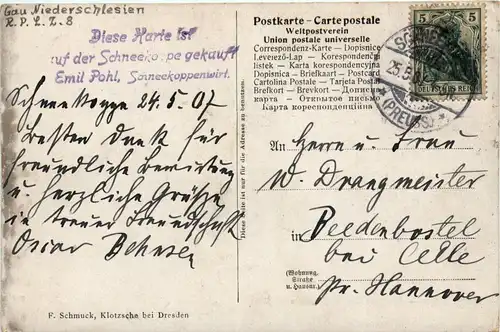 Gau Niederschlesien
R.P.L.Z.8
Diese Karte ist
auf der Schneekoppe gekauft
Emil Pohl, Schneekoppenwirt.
Schneekoppe 24.5.07
Besten Dank für
freundliche Bewirtung
u. herzliche Grüße
in treuer Freundschaft
Oscar
Diese Seite ist nur für die Adresse zu benutzen.
F. Schmuck, Klotzsche bei Dresden
Postkarte – Carte postale
Weltpostverein
Union postale universelle
Correspondenz-Karte – Dopisnice
Levelező-Lap – Korespondenční
lístek – Karta korespondencyjna
Dopisnica – Briefkaart – Postcard
Cartolina Postale – Tarjeta Postal
Brefkort – Brevkort – Дописна
карта – Открытое письмо
Карта кореспонденційна
5 5
DEUTSCHES REICH
25.5.
(PREUSS)
An Herrn u. Frau
W. Drangmeister
in Beedenbostel
bei Celle
(Wohnung,
Straße
u. Hausnr.)
Pr. Hannover